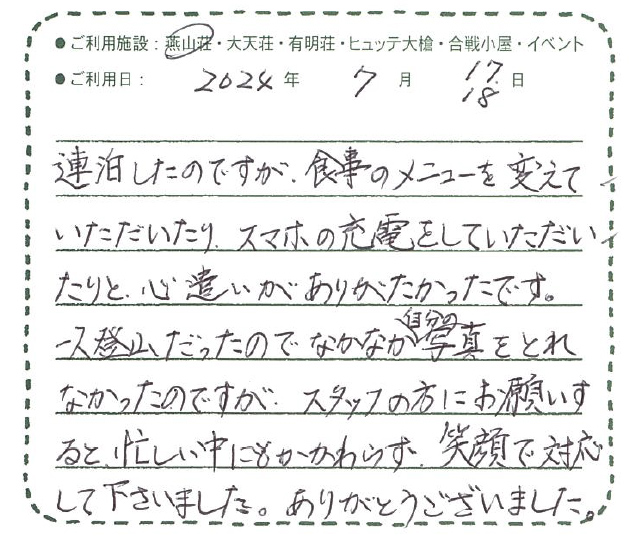 ●ご利用施設：燕山荘・大天荘・有明荘・ヒュッテ大槍・合戦小屋・イベント
●ご利用日： 2024年 7月 17.18日
連泊したのですが、食事のメニューを変えて
いただいたり、スマホの充電をしていただい
たりと、心遣いがありがたかったです。
一人登山だったのでなかなか自分の写真をとれ
なかったのですが、スタッフの方にお願いす
ると、忙しい中にもかかわらず、笑顔で対応
して下さいました。ありがとうございました。